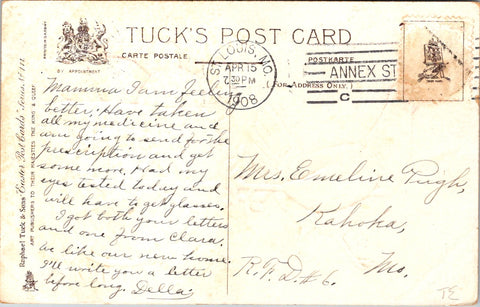 TUCK'S POST CARD
CARTE POSTALE
POSTKARTE
BY APPOINTMENT
(FOR ADDRESS ONLY.)
ST. LOUIS, MO.
APR 15
7 30 PM
1908
ANNEX ST
C
Raphael Tuck & Sons' "Easter Post Cards"
ART PUBLISHERS TO THEIR MAJESTIES THE KING & QUEEN
Mamma I am feeling
better. Have taken
all my medicine and
are going to send for the
prescription and get
some more. Had my
eyes tested today and
will have to get glasses.
I got both your letters
and one from Clara,
We like our new home.
I'll write you a letter
before long. Della.
Mrs. Emeline Pugh,
Kahoka,
Mo.
R.F.D. #6.